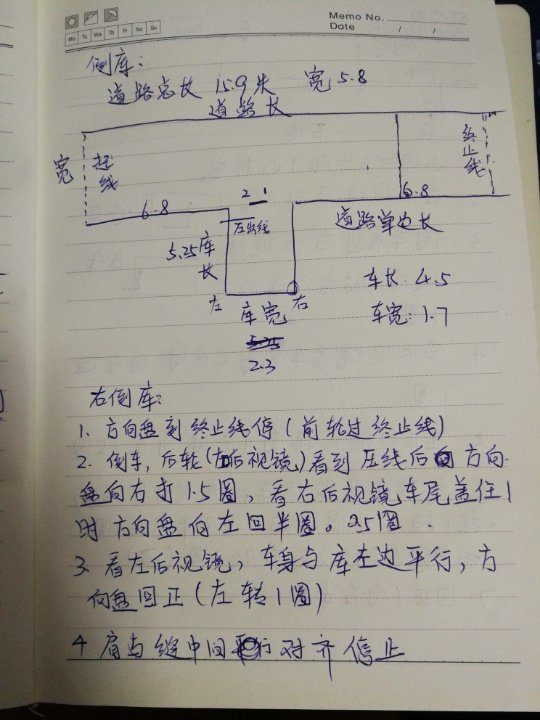 Memo No.
Mo Tu We Th Fr Sa Su
Date / /
倒库:
道路总长 15.9米 宽 5.8
道路长
宽
起线
终止线
2 1
6.8
6.8
左出线
道路单边长
5.25库长
车长:4.5
左
右
库宽
车宽:1.7
2.3
右倒库:
1. 方向盘到终止线停(前轮过终止线)
2. 倒车,后轮(左后视镜)看到压线后 方向
盘向右打1.5圈,看右后视镜,车尾盖住1
时方向盘向左回半圈。0.5圈.
3 看左后视镜,车身与库左边平行,方
向盘回正(左转1圈)
4 肩与缝中间 对齐停止